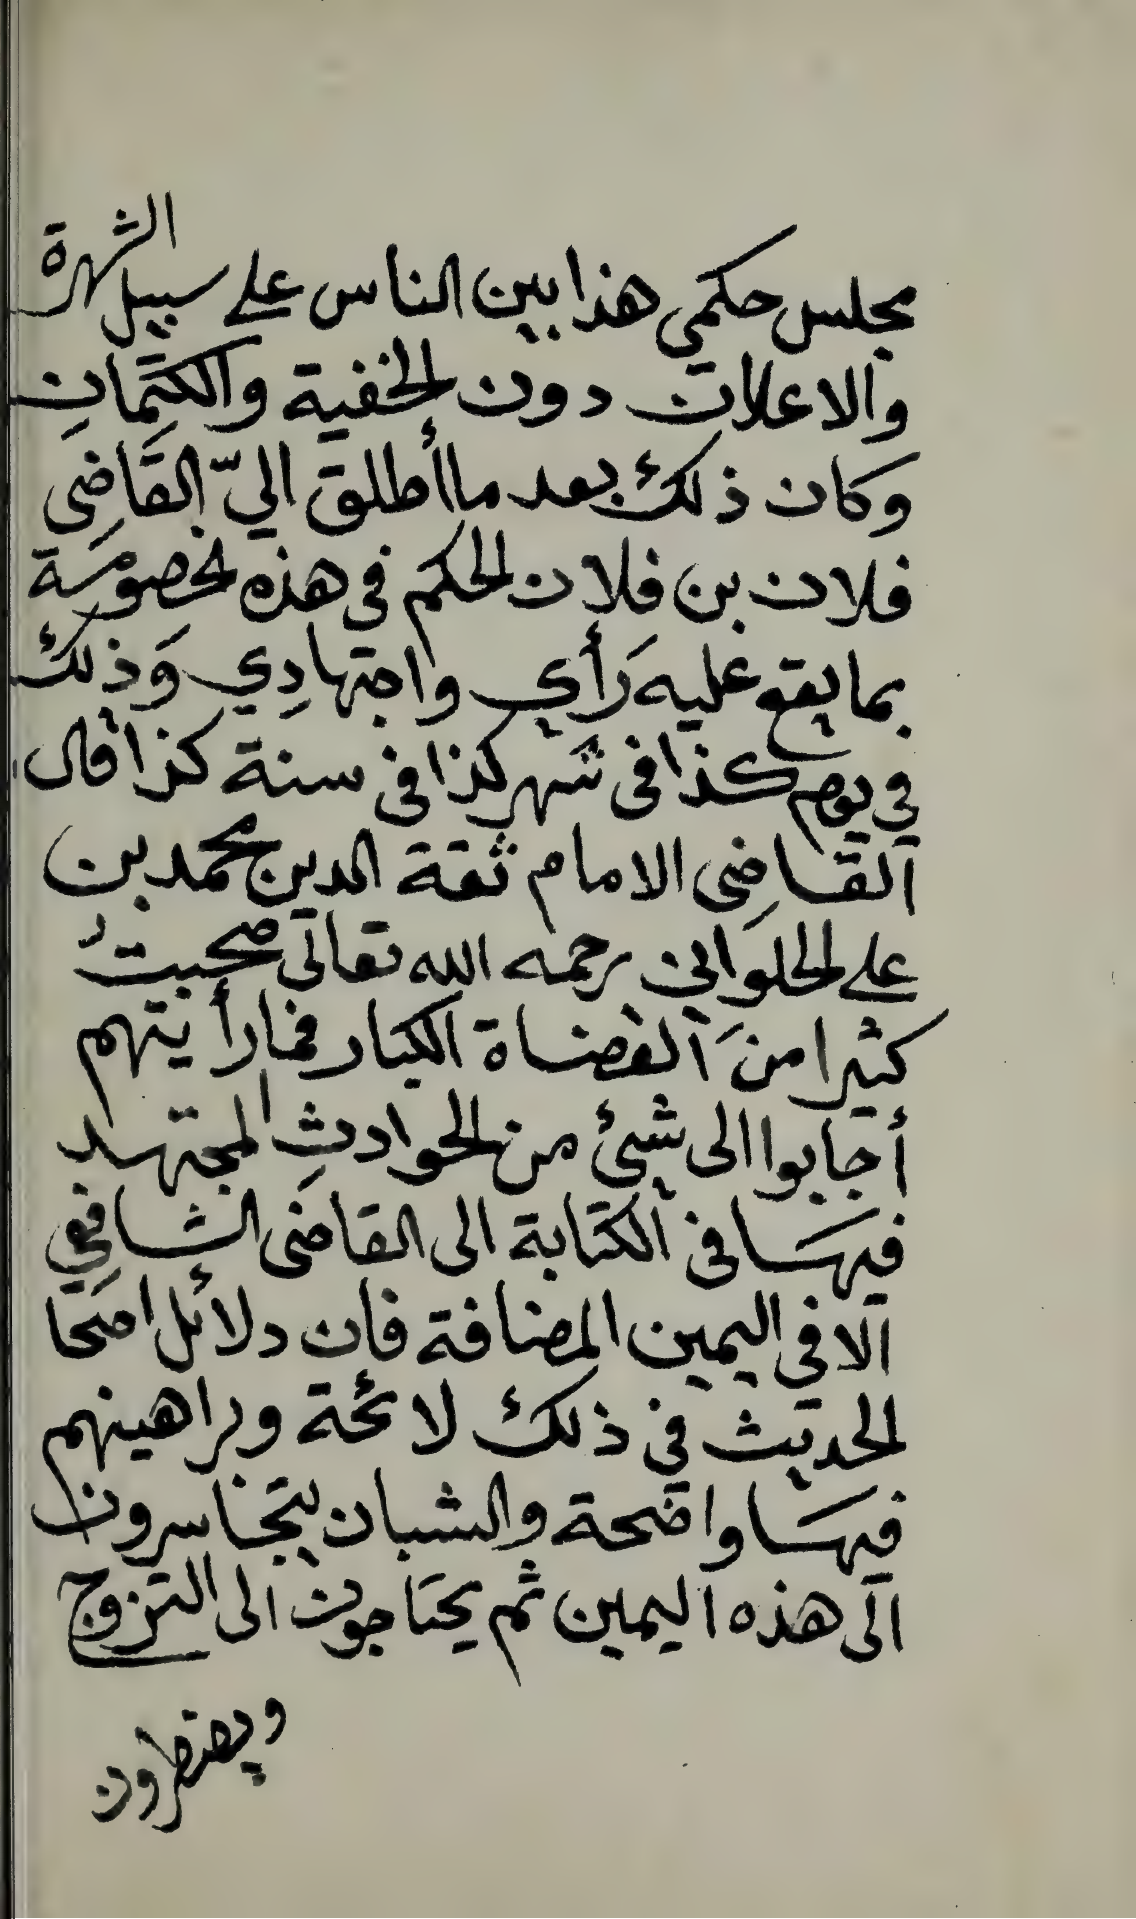 مجلس حكمي هذا بين الناس على سبيل الشهرة
والاعلان دون الخفية والكتمان
وكان ذلك بعد ما أطلق اليّ القاضي
فلان بن فلان الحكم في هذه الخصومة
بما يقع عليه رَأيي واجتهادِي وَذلك
في يوم كذا في شهر كذا في سنة كذا قال
القاضِى الامام ثقة الدين محمد بن
على الحلوانى رحمه الله تعالى صحبتُ
كثيرا منَ القضاة الكبار فما رأيتهم
أجابوا الى شيئ من الحوادثِ المجتهد
فيهَا في الكتابة الى القاضى الشافعي
الا في اليمين المضافة فان دلائل اصَحا
الحديث في ذلك لائحة وبراهينهم
فيهَا واضحة والشبان يتجاسرون
الى هذه اليمين ثم يحتاجون الى التزوج
ويضطرون